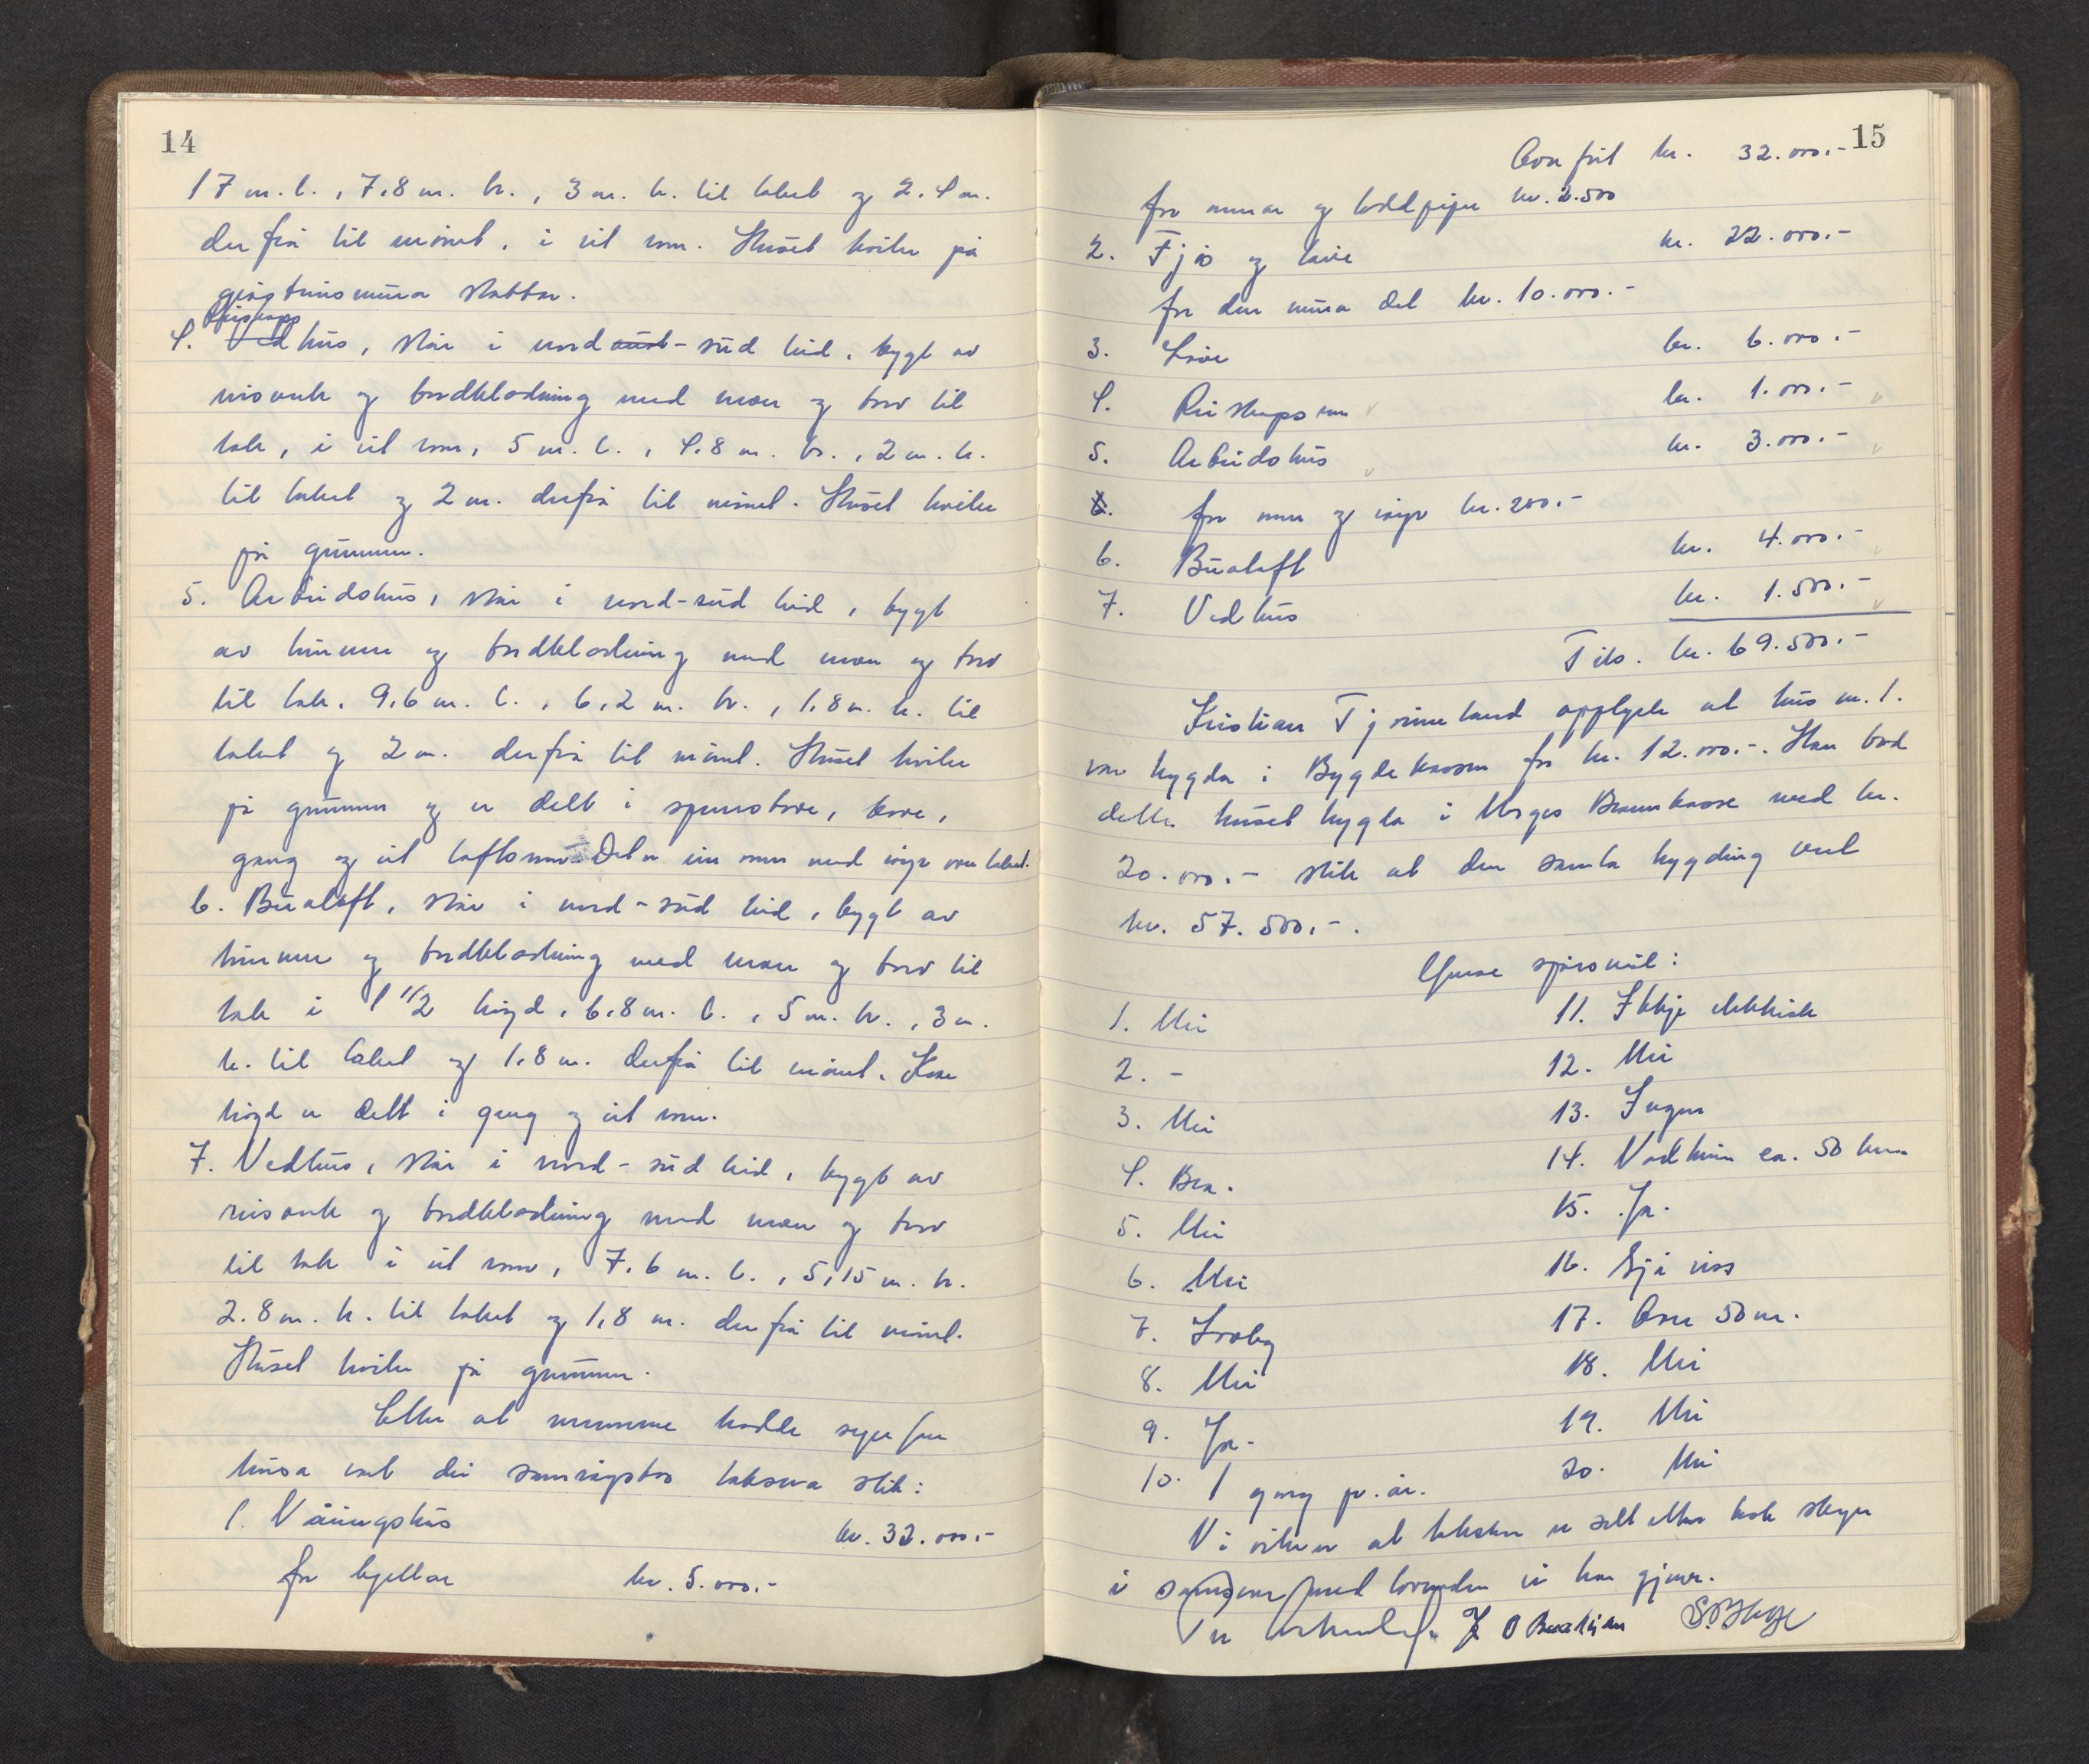 14
17 m. l., 7,8 m. br., 3 m. h. til taket og 2.4 m.
derfrå til mønet, i eit rom. Huset kviler på
gråsteinsmura stabbar.
Reiskaps
4. Vedhus, står i nordaust-sud leid, bygt av
reisverk og bordkledning med never og torv til
tak, i eit rom, 5 m. l., 4.8 m. br., 2 m. h.
til taket og 2 m. derfrå til mønet. Huset kviler
på grunnen.
5. Arbeidshus, står i nord-sud leid, bygt
av timmer og bordkledning med never og torv
til tak. 9,6 m. l., 6,2 m. br., 1,8 m. h. til
taket og 2 m. derfrå til mønet. Huset kviler
på grunnen og er delt i smørstove, kove,
gang og eit loftsrom. Det er ein mur med røyr over taket.
6. Bualoft, står i nord-sud leid, bygt av
timmer og bordkledning med never og torv til
tak i 1 1/2 høgd, 6,8 m. l., 5 m. br., 3 m.
h. til taket og 1,8 m. derfrå til mønet. Kvar
høgd er delt i gang og eit rom.
7. Vedhus, står i nord-sud leid, bygt av
reisverk og bordkledning med never og torv
til tak i eit rom, 7,6 m. l., 5,15 m. br.
2.8 m. h. til taket og 1,8 m. derfrå til mønet.
Huset kviler på grunnen.
Etter at mennene hadde synfare
husa vart dei samrøystes taksera slik:
1. Våningshus kr. 32.000.-
for kjellar kr. 5.000.-
15
Overført kr. 32.000.-
for murar og loddpipe kr. 2.500
2. Fjøs og løe kr. 22.000.-
for den mura del kr. 10.000.-
3. Løe kr. 6.000.-
4. Reiskapsrom kr. 1.000.-
5. Arbeidshus kr. 3.000.-
6. for mur og røyr kr. 200.-
6. Bualoft kr. 4.000.-
7. Vedhus kr. 1.500.-
Tils. kr. 69.500.-
Kristian Tjønneland opplyste at hus nr. 1.
var trygda i Bygdekassen for kr. 12.000.-. Han bad
dette huset trygda i Norges Brannkasse med kr.
20.000.- slik at den samla trygding vert
kr. 57.500.-.
Ymse spørsmål:
1. Nei
2. -
3. Nei
4. Bra.
5. Nei
6. Nei
7. Landbr.
8. Nei
9. Ja.
10. 1 gong pr. år.
11. Ikkje elektrisk
12. Nei
13. Ingen
14. Vadheim ca. 50 km
15. Ja.
16. Sjå riss
17. Over 50 m.
18. Nei
19. Nei
20. Nei
Vi vitnar at taksten er sett etter beste skjøn
i samsvar med lovnaden vi har gjeve.